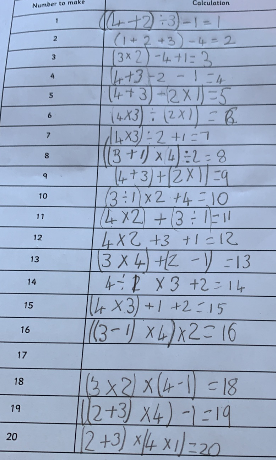 Number to make Calculation
1 ((4+2)÷3)-1=1
2 (1+2+3)-4=2
3 (3×2)-4+1=3
4 (4+3-2-1=4
5 (4+3)-(2×1)=5
6 (4×3)÷(2×1)=6
7 (4×3)÷2+1=7
8 ((3+1)×4)÷2=8
9 (4+3)+(2×1)=9
10 (3÷1)×2+4=10
11 (4×2)+(3÷1)=11
12 4×2+3+1=12
13 (3×4)+(2-1)=13
14 4÷1×3+2=14
15 (4×3)+1+2=15
16 ((3-1)×4)×2=16
17
18 (3×2)×(4-1)=18
19 ((2+3)×4)-1=19
20 (2+3)×(4×1)=20